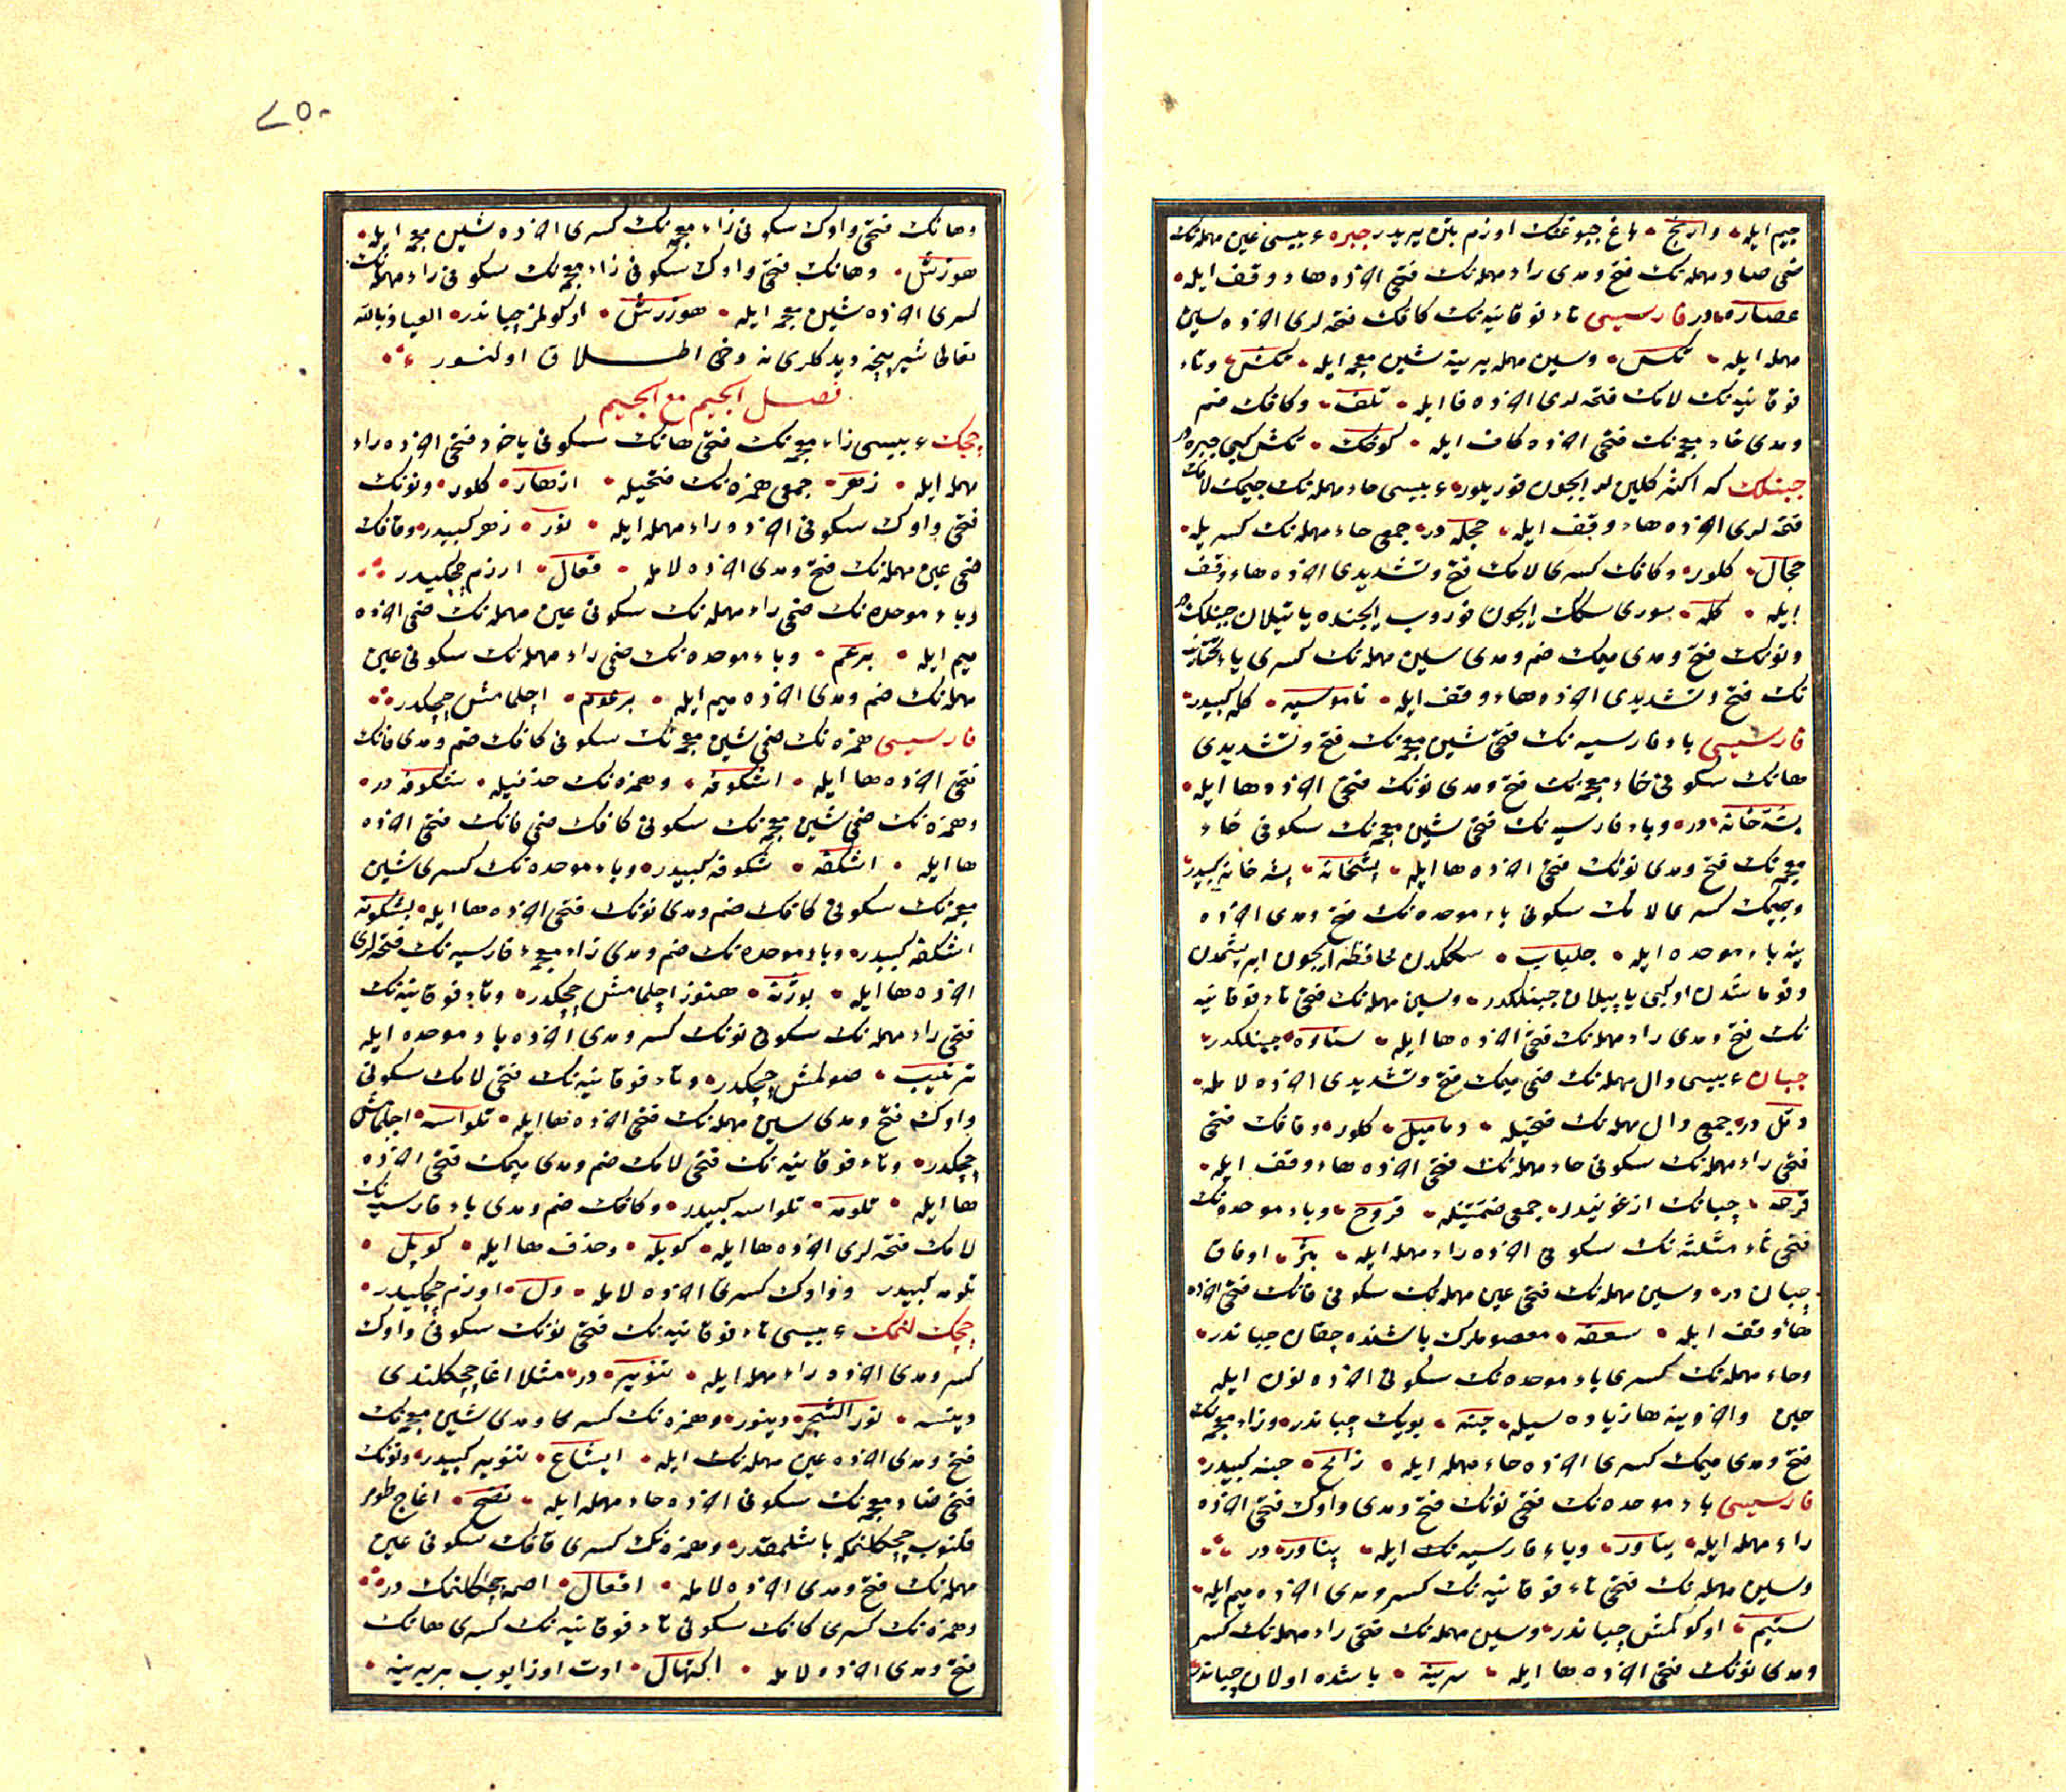 جيم ايله وارنج باغ چبوغنك اوزم بتن يريدر جبره عربيسى عين مهمله نك
ضمى صاد مهمله نك فتح ومدى راء مهمله نك فتحى اخذه هاء وقف ايله
عصاره در فارسيسى تاء فوقانيه نك كافك فتحه لرى اخذه سين
مهمله ايله تكس وسين مهمله يرينه شين معجمه ايله تكش وتاء
فوقانيه نك لامك فتحه لرى اخذه فا ايله تلف وكافك ضم
ومدى خاء معجمه نك فتحى اخذه كاف ايله كوخك تكش كبى جبره در
جبنلك كه اكثر كلين لر ايچون قوريلور عربيسى حاء مهمله نك جيمك لامك
فتحه لرى اخذه هاء وقف ايله حجله در جمعى حاء مهمله نك كسريله
حجال كلور وكافك كسرى لامك فتح وتشديدى اخذه هاء وقف
ايله كله سورى سكك ايچون قوروب ايچنده ياتيلان جبنلكدر
ونونك فتح ومدى ميمك ضم ومدى سين مهمله نك كسرى ياء تحتانيه
نك فتح وتشديدى اخذه هاء وقف ايله ناموسيه كله كبيدر
فارسيسى باء فارسيه نك فتحى شين معجمه نك فتح وتشديدى
هانك سكونى خاء معجمه نك فتح ومدى نونك فتحى اخذه ها ايله
پشه خانه در وباء فارسيه نك فتحى شين معجمه نك سكونى خاء
معجمه نك فتح ومدى نونك فتحى اخذه ها ايله پشخانه پشه خانه كبيدر
وجيمك كسرى لامك سكونى باء موحده نك فتح ومدى اخذه
ينه باء موحده ايله جلباب سككدن محافظه ايچون ابريشمدن
وقوماشدن اوكى ياپيلان جبنلكدر وسين مهمله نك فتحى تاء فوقانيه
نك فتح ومدى راء مهمله نك فتحى اخذه ها ايله ستاره جبنلكدر
چبان عربيسى دال مهمله نك ضمى ميمك فتح وتشديدى اخذه لامله
دمل در جمعى دال مهمله نك فتحيله دماميل كلور وقافك فتحى
فتحى راء مهمله نك سكونى حاء مهمله نك فتحى اخذه هاء وقف ايله
قرحه چبانك ازغونيدر جمعى ضمتينله قروح وباء موحده نك
فتحى ثاء مثلثه نك سكونى اخذه راء مهمله ايله بثر اوفاق
چبان در وسين مهمله نك فتحى عين مهمله نك سكونى فانك فتحى اخذه
هاء وقف ايله سعفه معصوملرك باشنده چقان چباندر
وحاء مهمله نك كسرى باء موحده نك سكونى اخذه نون ايله
حبن واخرينه ها زياده سيله حبنه بويك چباندر وزاء معجمه نك
فتح ومدى ميمك كسرى اخذه حاء مهمله ايله زامح حبنه كبيدر
فارسيسى باء موحده نك فتحى نونك فتح ومدى واوك فتحى اخذه
راء مهمله ايله بناور وباء فارسيه نك ايله پناور در
وسين مهمله نك فتحى تاء فوقانيه نك كسر ومدى اخذه ميم ايله
ستيم اوكولمش چباندر وسين مهمله نك فتحى راء مهمله نك كسر
ومدى نونك فتحى اخذه ها ايله سرينه باشده اولان چباندر
٢٥٠
وهانك فتحى واوك سكونى زاء معجمه نك كسرى اخذه شين معجمه ايله
هوزش وهانك فتحى واوك سكونى زاء معجمه نك سكونى راء مهمله نك
كسرى اخذه شين معجمه ايله هوزرش اوكولمز چباندر العياذ بالله
تعالى شيرپنجه ديدكلرى نه دخى اطلاق اولنور
فصل الجيم مع الجيم
چچك عربيسى زاء معجمه نك فتحى هانك سكونى ياخود فتحى اخذه راء
مهمله ايله زهر جمعى همزه نك فتحيله ازهار كلور ونونك
فتحى واوك سكونى اخذه راء مهمله ايله نور زهر كبيدر وفانك
ضمى عين مهمله نك فتح ومدى اخذه لامله فعال اوزم چچكيدر
وباء موحده نك ضمى راء مهمله نك سكونى عين مهمله نك ضمى اخذه
ميم ايله برعم وباء موحده نك ضمى راء مهمله نك سكونى عين
مهمله نك ضم ومدى اخذه ميم ايله برعوم اچلمامش چچكدر
فارسيسى همزه نك ضمى شين معجمه نك سكونى كافك ضم ومدى فانك
فتحى اخذه ها ايله اشكوفه وهمزه نك حذفيله شكوفه در
وهمزه نك ضمى شين معجمه نك سكونى كافك ضمى فانك فتحى اخذه
ها ايله اشكفه شكوفه كبيدر وباء موحده نك كسرى شين
معجمه نك سكونى كافك ضم ومدى فونك فتحى اخذه ها ايله بشكوفه
اشكفه كبيدر وباء موحده نك ضم ومدى زاء معجمه فارسيه نك فتحه لرى
اخذه ها ايله بوژنه هنوز اچلمامش چچكدر وتاء فوقانيه نك
فتحى راء مهمله نك سكونى نونك كسر ومدى اخذه باء موحده ايله
ترنيب صولمش چچكدر وتاء فوقانيه نك فتحى لامك سكونى
واوك فتح ومدى سين مهمله نك فتحى اخذه ها ايله تلواسه اچلمامش
چچكدر وتاء فوقانيه نك فتحى لامك ضم ومدى ميمك فتحى اخذه
ها ايله تلومه تلواسه كبيدر وكافك ضم ومدى باء فارسيه نك
لامك فتحه لرى اخذه ها ايله كوپله وحذف ها ايله كوپل
تلومه كبيدر وواوك كسرى اخذه لامله ول اوزم چچكيدر
چچك لنمك عربيسى تاء فوقانيه نك فتحى نونك سكونى واوك
كسر ومدى اخذه راء مهمله ايله تنوير در مثلا اغاج چچكلندى
دينسه نور الشجر دينور وهمزه نك كسرى ومدى شين معجمه نك
فتح ومدى اخذه عين مهمله نك ايله ايشاع تنوير كبيدر ونونك
فتحى ضاد معجمه نك سكونى اخذه حاء مهمله ايله نضح اغاج طومر
قلنوب چچكلنمكه باشلمقدر وهمزه نك كسرى فانك سكونى عين
مهمله نك فتح ومدى اخذه لامله افعال اصمه چچكلنمك در
وهمزه نك كسرى كافك سكونى تاء فوقانيه نك كسرى هانك
فتح ومدى اخذه لامله اكتهال اوت اوزايوب بربرينه